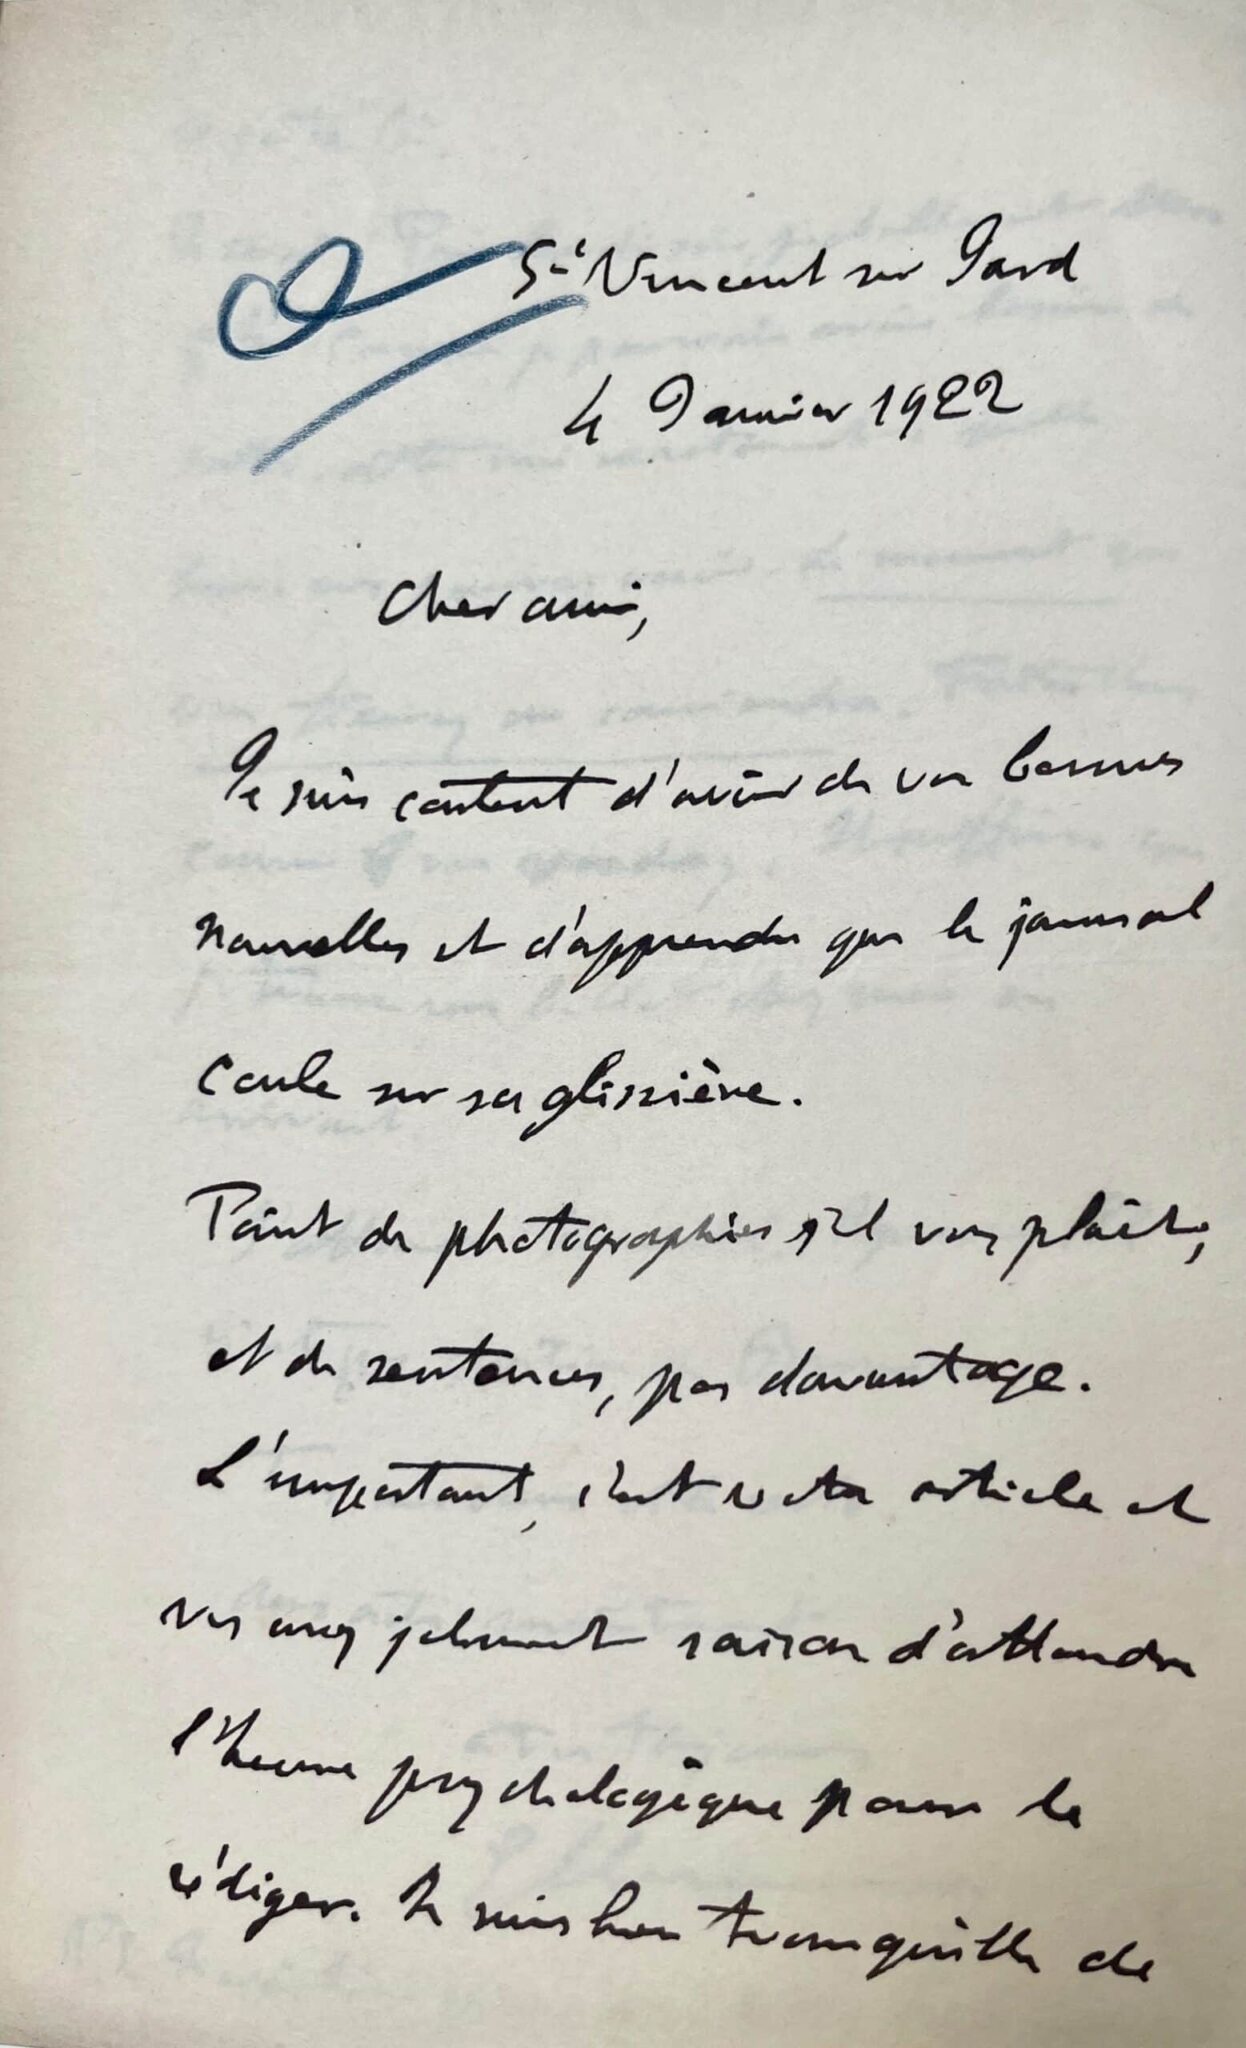 St Vincent sur Jard
4 Janvier 1922
Cher ami,
Je suis content d'avoir de vos bonnes
nouvelles et d'apprendre que le journal
coule sur sa glissière.
Point de photographies s'il vous plaît,
et de sentences, pas davantage.
L'important, c'est votre article et
vous avez joliment raison d'attendre
l'heure psychologique pour le
rédiger. Je suis bien tranquille de